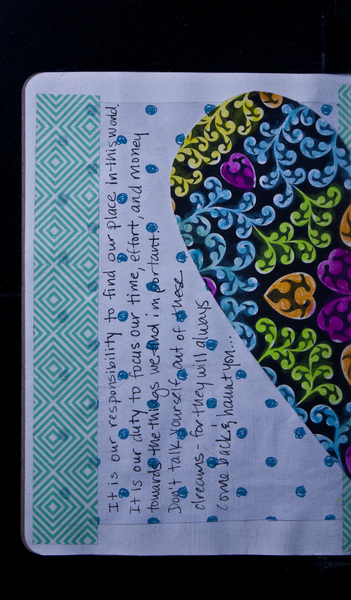 It is our responsibility to find our place in this world.
It is our duty to focus our time, effort, and money
towards the things we find important.
Don't talk yourself out of these
dreams - for they will always
come back & haunt you...